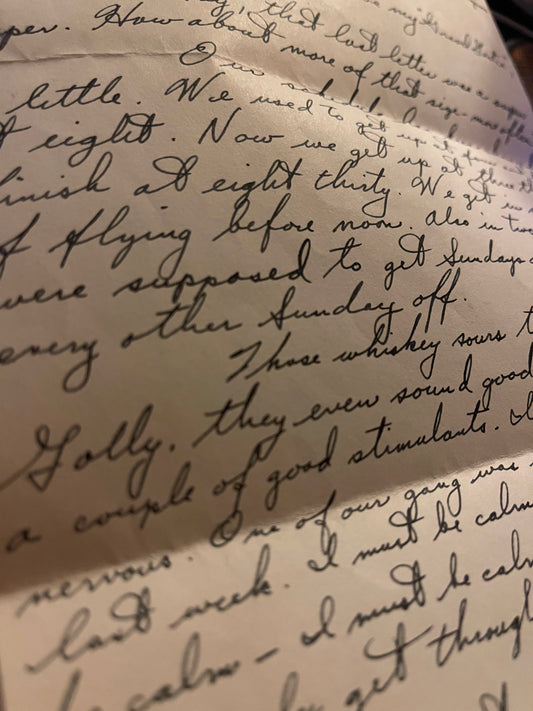 my
that last letter was a
per. How about more of that size more often
Our schedule
little. We used to get up at four and
t eight. Now we get up at three
finish at eight thirty. We get in
of flying before noon. Also in two
were supposed to get Sundays
every other Sunday off.
Those whiskey sours
Golly, they even sound good
a couple of good stimulants. I
nervous. One of our gang was
last week. I must be calm
be calm - I must be calm
get through